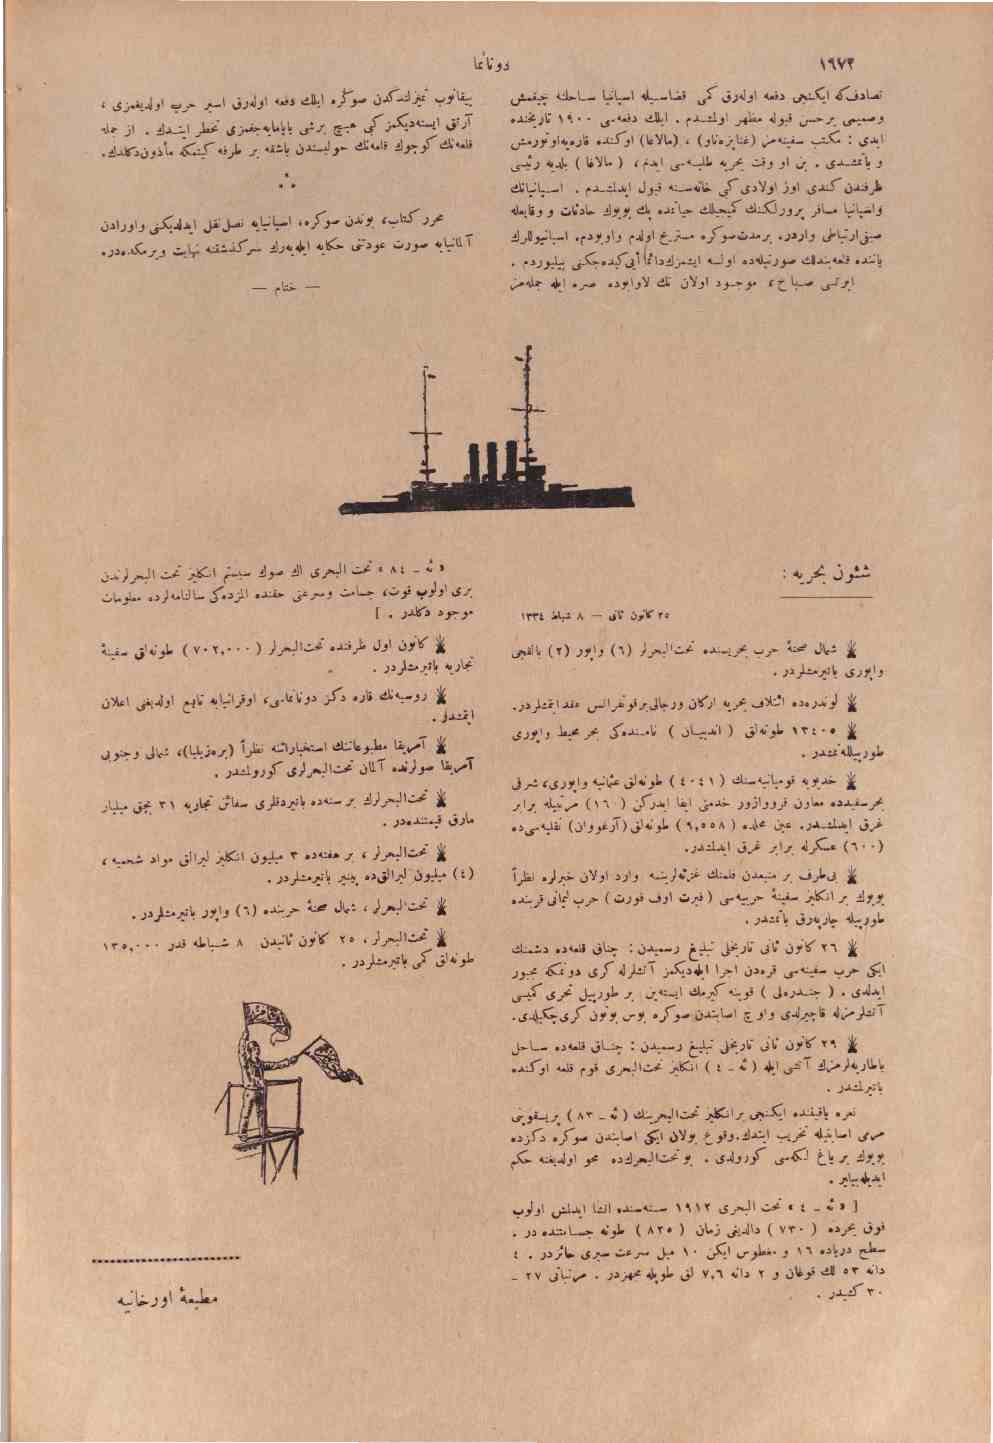 ١٦٧٢
دونانما
تصادفكه ايكنجى دفعه اوله‌رق كمى قضاسيله اسپانيا ساحلنه چيقمش
وصميمى برحسن قبوله مظهر اولمشدم . ايلك دفعه‌سى ١٩٠٠ تاريخنده
ايدى : مكتب سفينه‌مز (غنايزه‌ناو) ، (مالاغا) اوكنده قاره‌يه‌اوتورمش
و باتمشدى . بن او وقت بحريه طلبه‌سى ايدم ، ( مالاغا ) بلديه رئيسى
طرفندن كندى اوز اولادى كبى خانه‌سنه قبول ايدلمشدم . اسپانيانك
واسپانيا مسافر پرورلكنك كميجيلك حياتمده پك بويوك حادثات و وقايعله
صيقى‌ارتباطى واردر. برمدت‌صوكره مستريح اولدم واويودم. اسپانيوللرك
ياننده قلعه‌بندلك صورتيله‌ده اولسه ايشمزك‌دائماً أيى‌كيده‌جكنى بيليوردم .
ايرتسى صباح ، موجود اولان تك لاوابوده صره ايله جمله‌مز
ييقانوب تميزلندكدن صوكره ايلك دفعه اوله‌رق اسير حرب اولديغمزى ،
آرتق ايستديكمز كبى هيچ برشى ياپامايه‌جغمزى تخطر ايتدك . از جمله
قلعه‌نك كوچوك قلعه‌نك حوليسندن باشقه بر طرفه كيتمكه مأذون‌دكلدك.
محرر كتاب، بوندن صوكره، اسپانيايه نصل‌نقل ايدلديكنى واورادن
آلمانيايه صورت عودتنى حكايه ايله‌يه‌رك سركذشتنه نهايت ويرمكده‌در.
— ختام —
شئون بحريه :
٢٥ كانون ثانى — ٨ شباط ١٣٣٤
شمال صحنۀ حرب بحريسنده تحت‌البحرلر (٦) واپور (٢) بالقجى
واپورى باتيرمشلردر .
لوندره‌ده ائتلاف بحريه اركان ورجالى‌برقونفرانس عقدايتمشلردر.
١٣٤٠٥ طونه‌لق ( اندييان ) نامنده‌كى بحر محيط واپورى
طورپيللنمشدر .
خديويه قومپانيه‌سنك (٤٠٤١) طونه‌لق عثمانيه واپورى، شرقى
بحرسفيدده معاون قرووازور خدمتى ايفا ايدركن (١٦٠) مرتبيله برابر
غرق ايدلمشدر. عين محلده ( ٩,٥٥٨ ) طونه‌لق (آرغووان) نقليه‌سى‌ده
(٦٠٠) عسكرله برابر غرق ايدلمشدر.
بى‌طرف بر منبعدن فلمنك غزته‌لرينه وارد اولان خبرلره نظراً
بويوك بر انكليز سفينۀ حربيه‌سى ( فيرت اوف فورت ) حرب ليمانى قربنده
طورپيله چارپه‌رق باتمشدر .
٢٦ كانون ثانى تاريخلى تبليغ رسميدن : چناق قلعه‌ده دشمنك
ايكى حرب سفينه‌سى قره‌دن اجرا ايله‌ديكمز آتشلرله كرى دونمكه مجبور
ايدلدى . ( جندره‌لى ) قوينه كيرمك ايسته‌ين بر طورپيل تحرى كميسى
آتشلرمزله قاچيرلدى واوچ اصابتدن‌صوكره بوس بوتون كرى‌چكيلدى.
٢٩ كانون ثانى تاريخلى تبليغ رسميدن : چناق قلعه‌ده ساحل
باطاريه‌لرمزك آتشى ايله ( ئه ـ ٤ ) انكليز تحت‌البحرى قوم قلعه اوكنده
باتيرلمشدر .
نعره ياقيننده ايكنجى بر انكليز تحت‌البحرينك ( ئه ـ ٨٣ ) پريسقوپنى
مرمى اصابتيله تخريب ايتدك.وقوع بولان ايكى اصابتدن صوكره دكزده
بويوك بر ياغ لكه‌سى كورولدى . بو تحت‌البحرك‌ده محو اولديغنه حكم
ايديله‌بيلير .
[ « ئه ـ ٤ » تحت البحرى ١٩١٢ سنه‌سنده انشا ايدلمش اولوب
فوق بحرده ( ٧٣٠ ) دالديغى زمان ( ٨٢٥ ) طونه جسامتنده در .
سطح درياده ١٦ و مغطوس ايكن ١٠ ميل سرعت سيرى حائزدر . ٤
دانه ٥٣ لك قوغان و ٢ دانه ٧,٦ لق طوپله مجهزدر . مرتباتى ٢٧ ـ
٣٠ كشيدر .
« ئه ـ ٨٤ » تحت البحرى اك صوك سيستم انكليز تحت البحرلرندن
برى اولوب قوت، جسامت وسرعتى حقنده المزده‌كى سالنامه‌لرده معلومات
موجود دكلدر . ]
كانون اول ظرفنده تحت‌البحرلر (٧٠٢,٠٠٠) طونه‌لق سفينۀ
تجاريه باتيرمشلردر .
روسيه‌نك قاره دكز دونانماسى، اوقرانيايه تابع اولديغنى اعلان
ايتمشدر .
آمريقا مطبوعاتنك استخباراتنه نظراً (بره‌زيليا)، شمالى وجنوبى
آمريقا صولرنده آلمان تحت‌البحرلرى كورولمشدر .
تحت‌البحرلرك بر سنه‌ده باتيردقلرى سفائن تجاريه ٣١ بچق ميليار
مارق قيمتنده‌در .
تحت‌البحرلر ، بر هفته‌ده ٣ ميليون انكليز ليرالق مواد شحميه ،
(٤) ميليون ليرالق‌ده پينير باتيرمشلردر .
تحت‌البحرلر ، شمال صحنۀ حربنده (٦) واپور باتيرمشلردر .
تحت‌البحرلر ، ٢٥ كانون ثانيدن ٨ شباطه قدر ١٣٥,٠٠٠
طونه‌لق كمى باتيرمشلردر .
مطبعۀ اورخانيه